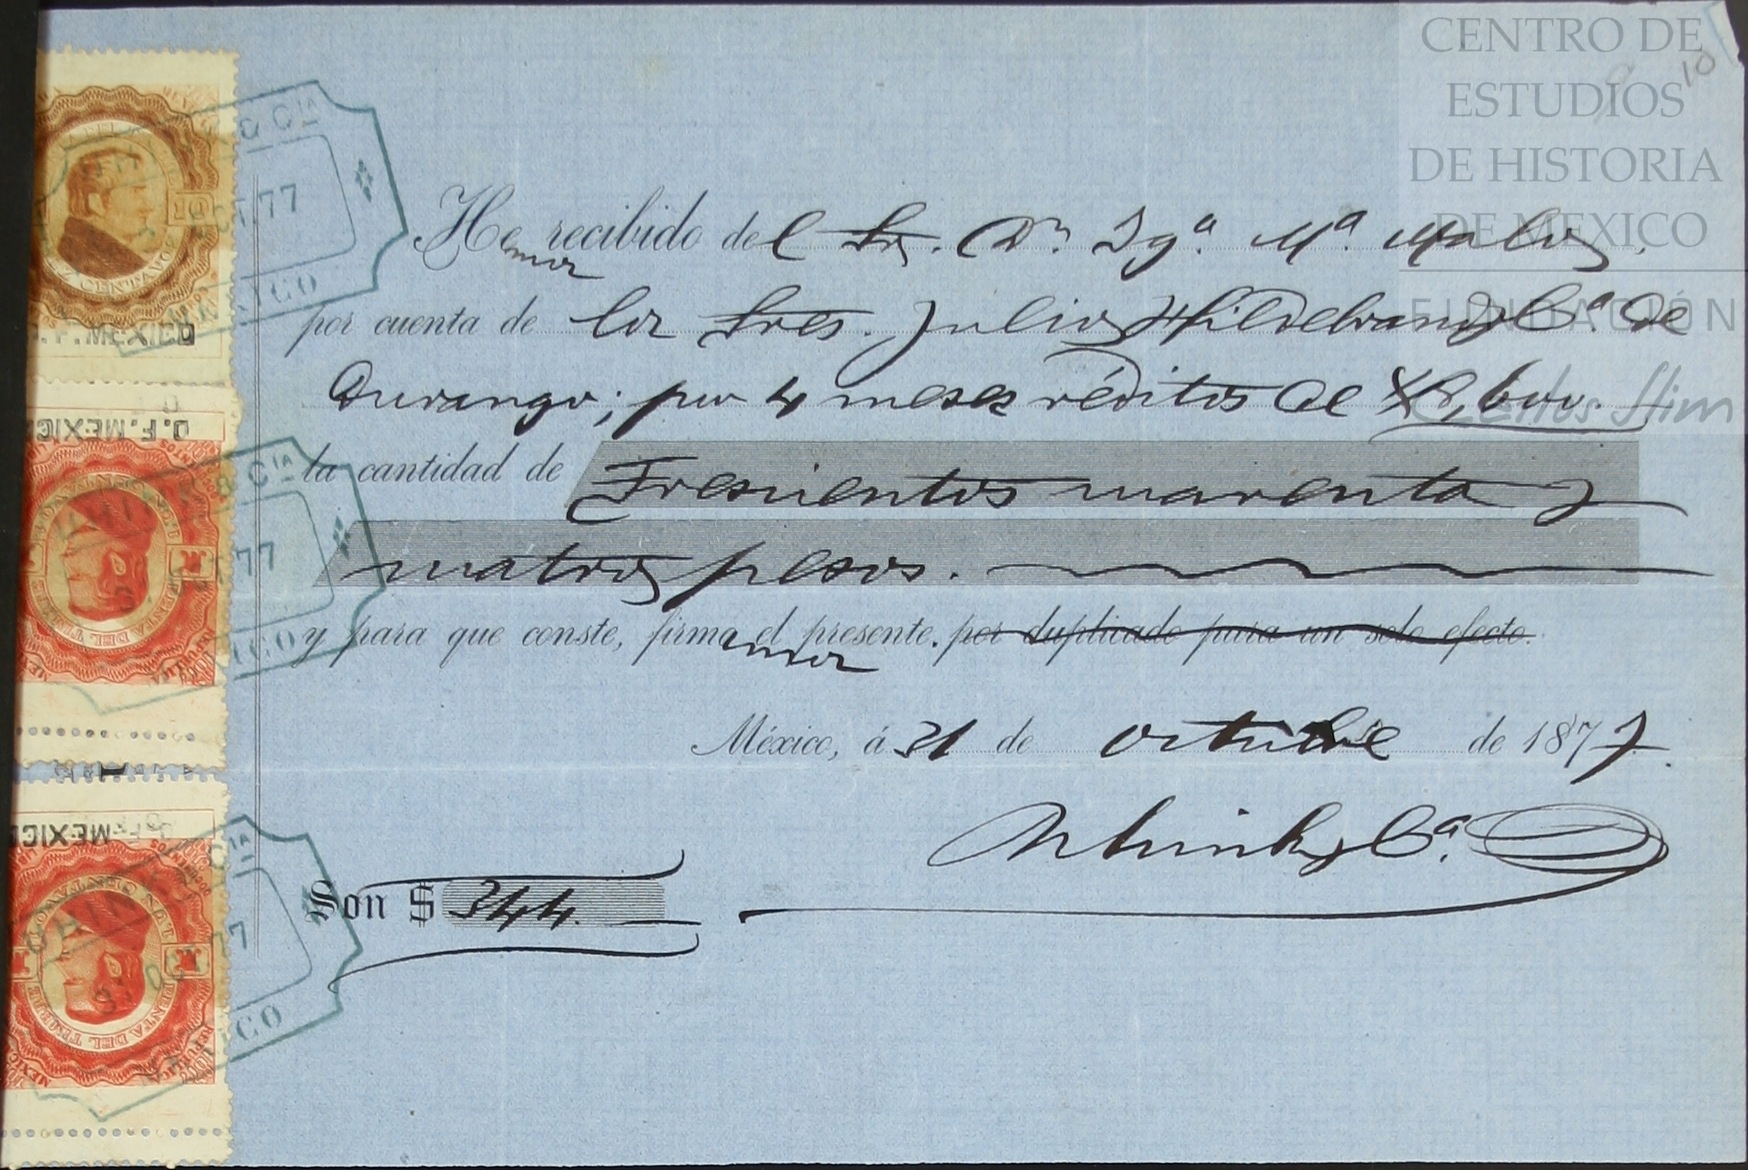 CENTRO DE
ESTUDIOS
DE HISTORIA
DE MÉXICO
FUNDACIÓN
Carlos Slim
10
Hemos recibido del Sr. Dn. Iga. Ma.
por cuenta de los Sres. Julio Hildebrand y Ca. de
Durango; por 4 meses réditos de $8,600.
la cantidad de Trescientos cuarenta y
cuatro pesos.
y para que conste, firmamos el presente. por duplicado para un solo efecto.
México, á 31 de octubre de 1877.
y Ca.
Son $ 344.
& CIA
OCT 77
MEXICO
10
CENTAVOS
D.F. MEXICO
D.F. MEXICO
& CIA
77
RENTA DEL TIMBRE
D.F. MEXICO
CIA
OCT 77
RENTA DEL TIMBRE